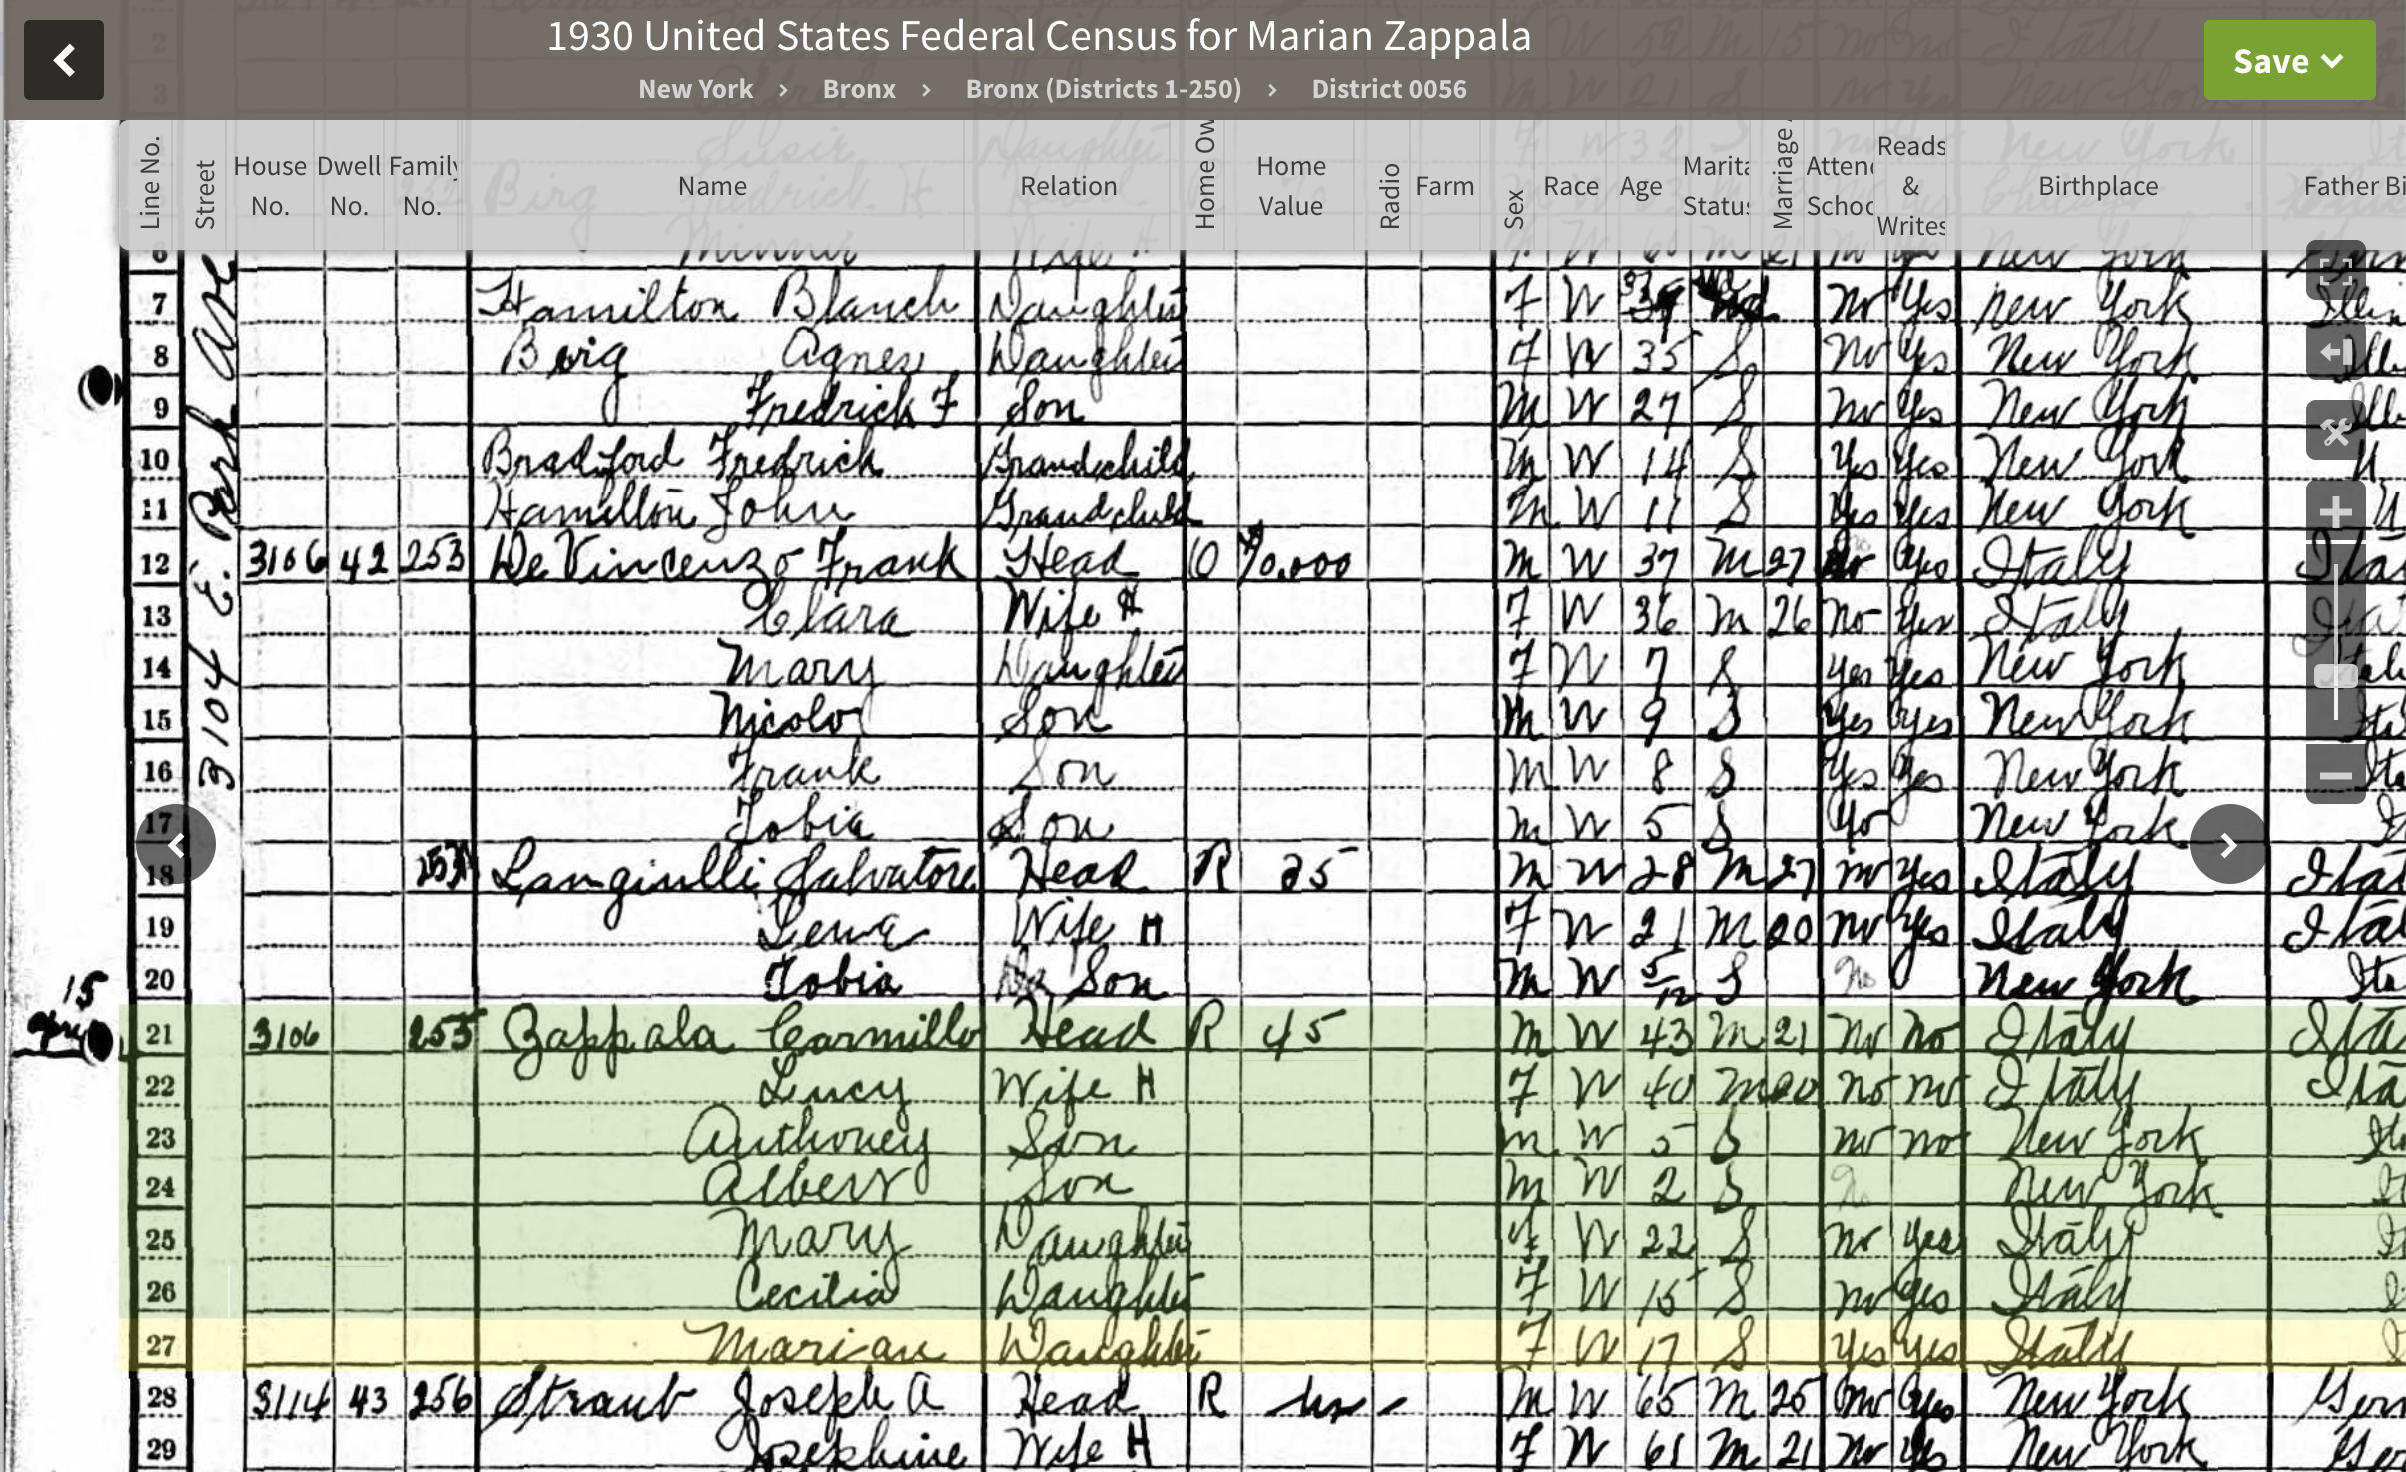 1930 United States Federal Census for Marian Zappala
New York › Bronx › Bronx (Districts 1-250) › District 0056
Save
Line No. Street House No. Dwell No. Family No. Name Relation Home Ow Home Value Radio Farm Sex Race Age Marita Status Marriage Atten Schoo Reads & Writes Birthplace Father Bi
6 Minnie Wife H F W M 21 New York
7 Hamilton Blanch Daughter F W No Yes New York
8 Berg Agnes Daughter F W 35 S No Yes New York
9 Fredrick F Son M W 27 S No Yes New York
10 Bradford Fredrick Grandchild M W 14 S Yes Yes New York
11 Hamilton John Grandchild M W 11 S Yes Yes New York
3104 E. Park Ave
12 3106 42 253 De Vincenzo Frank Head O M W 37 M 27 Yes Italy
13 Clara Wife H F W 36 M 26 No Yes Italy
14 Mary Daughter F W 7 S Yes Yes New York
15 Nicolo Son M W 9 S Yes Yes New York
16 Frank Son M W 8 S Yes Yes New York
17 Tobia Son M W 5 S New York
18 Salvatore Head R 25 M W 28 M 27 No Yes Italy
19 Lena Wife H F W 21 M 20 No Yes Italy
20 Tobia Son M W 5/12 S No New York
15
21 3106 255 Zappala Carmillo Head R 45 M W 43 M 21 No No Italy
22 Lucy Wife H F W 40 M 20 No No Italy
23 Anthoney Son M W 5 S No No New York
24 Albert Son M W 2 S No New York
25 Mary Daughter F W 22 S No Yes Italy
26 Cecilia Daughter F W 15 S No Yes Italy
27 Marian Daughter F W 17 S Yes Yes Italy
28 3114 43 256 Straub Joseph A Head R M W 65 M 25 No Yes New York
29 Josephine Wife H F W 61 M 21 No Yes New York